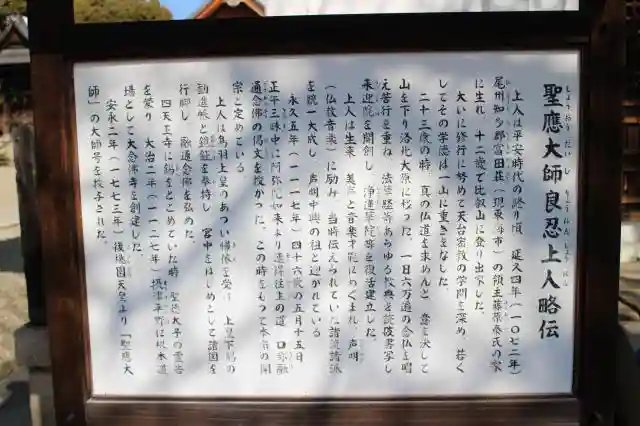 聖應大師良忍上人略伝
しょうおうだいしりょうにんしょうにん
上人は平安時代の降り頃 延久四年(一〇七二年)
尾州知多郡富田荘(現東海市)の領主藤原秦氏の家
に生れ 十二歳で比叡山に登り出家した。
大いに修行に努めて天台密教の学問を深め、若く
してその学徳は一山に重きをなした。
二十三歳の時、真の仏道を求めんと 意を決して
山を下り洛北大原に移った。一日六万遍の念仏を唱
え苦行を重ね 法華経等あらゆる教典を読破書写し
来迎院を開創し 浄蓮華院等を復活建立した。
上人は生来 美声と音楽才能にめぐまれ 声明
(仏教音楽)に励み 当時伝えられていた諸流諸派
を統一大成し 声明中興の祖と迎がれている
永久五年(一一一七年)四十六歳の五月十五日
正午三昧中に阿弥陀如来より速疾往生の道 口称融
通念佛の偈文を授かった。この時をもって本宗の開
宗と定めている
上人は鳥羽上皇のあつい帰依を受け 上皇下賜の
勧進帳と鏡鉦を奉持し 宮中をはじめとして諸国を
行脚し 融通念佛を弘めた。
四天王寺に錫をとどめていた時 聖徳太子の霊告
を蒙り 大治二年(一一二七年)摂津平野に根本道
場として大念佛寺を創建した。
安永二年(一七七三年)後桃園天皇より「聖應大
師」の大師号を授与された。